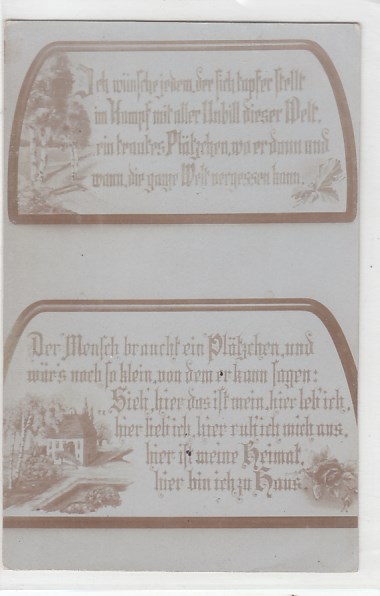 Ich wünsche jedem, der sich tapfer stellt
im Kampf mit aller Unbill dieser Welt,
ein trautes Plätzchen, wo er dann und
wann, die ganze Welt vergessen kann.
Der Mensch braucht ein Plätzchen, und
wär's noch so klein, von dem er kann sagen:
„Sieh, hier das ist mein, hier leb' ich,
hier lieb' ich, hier ruh' ich mich aus,
hier ist meine Heimat,
hier bin ich zu Haus.